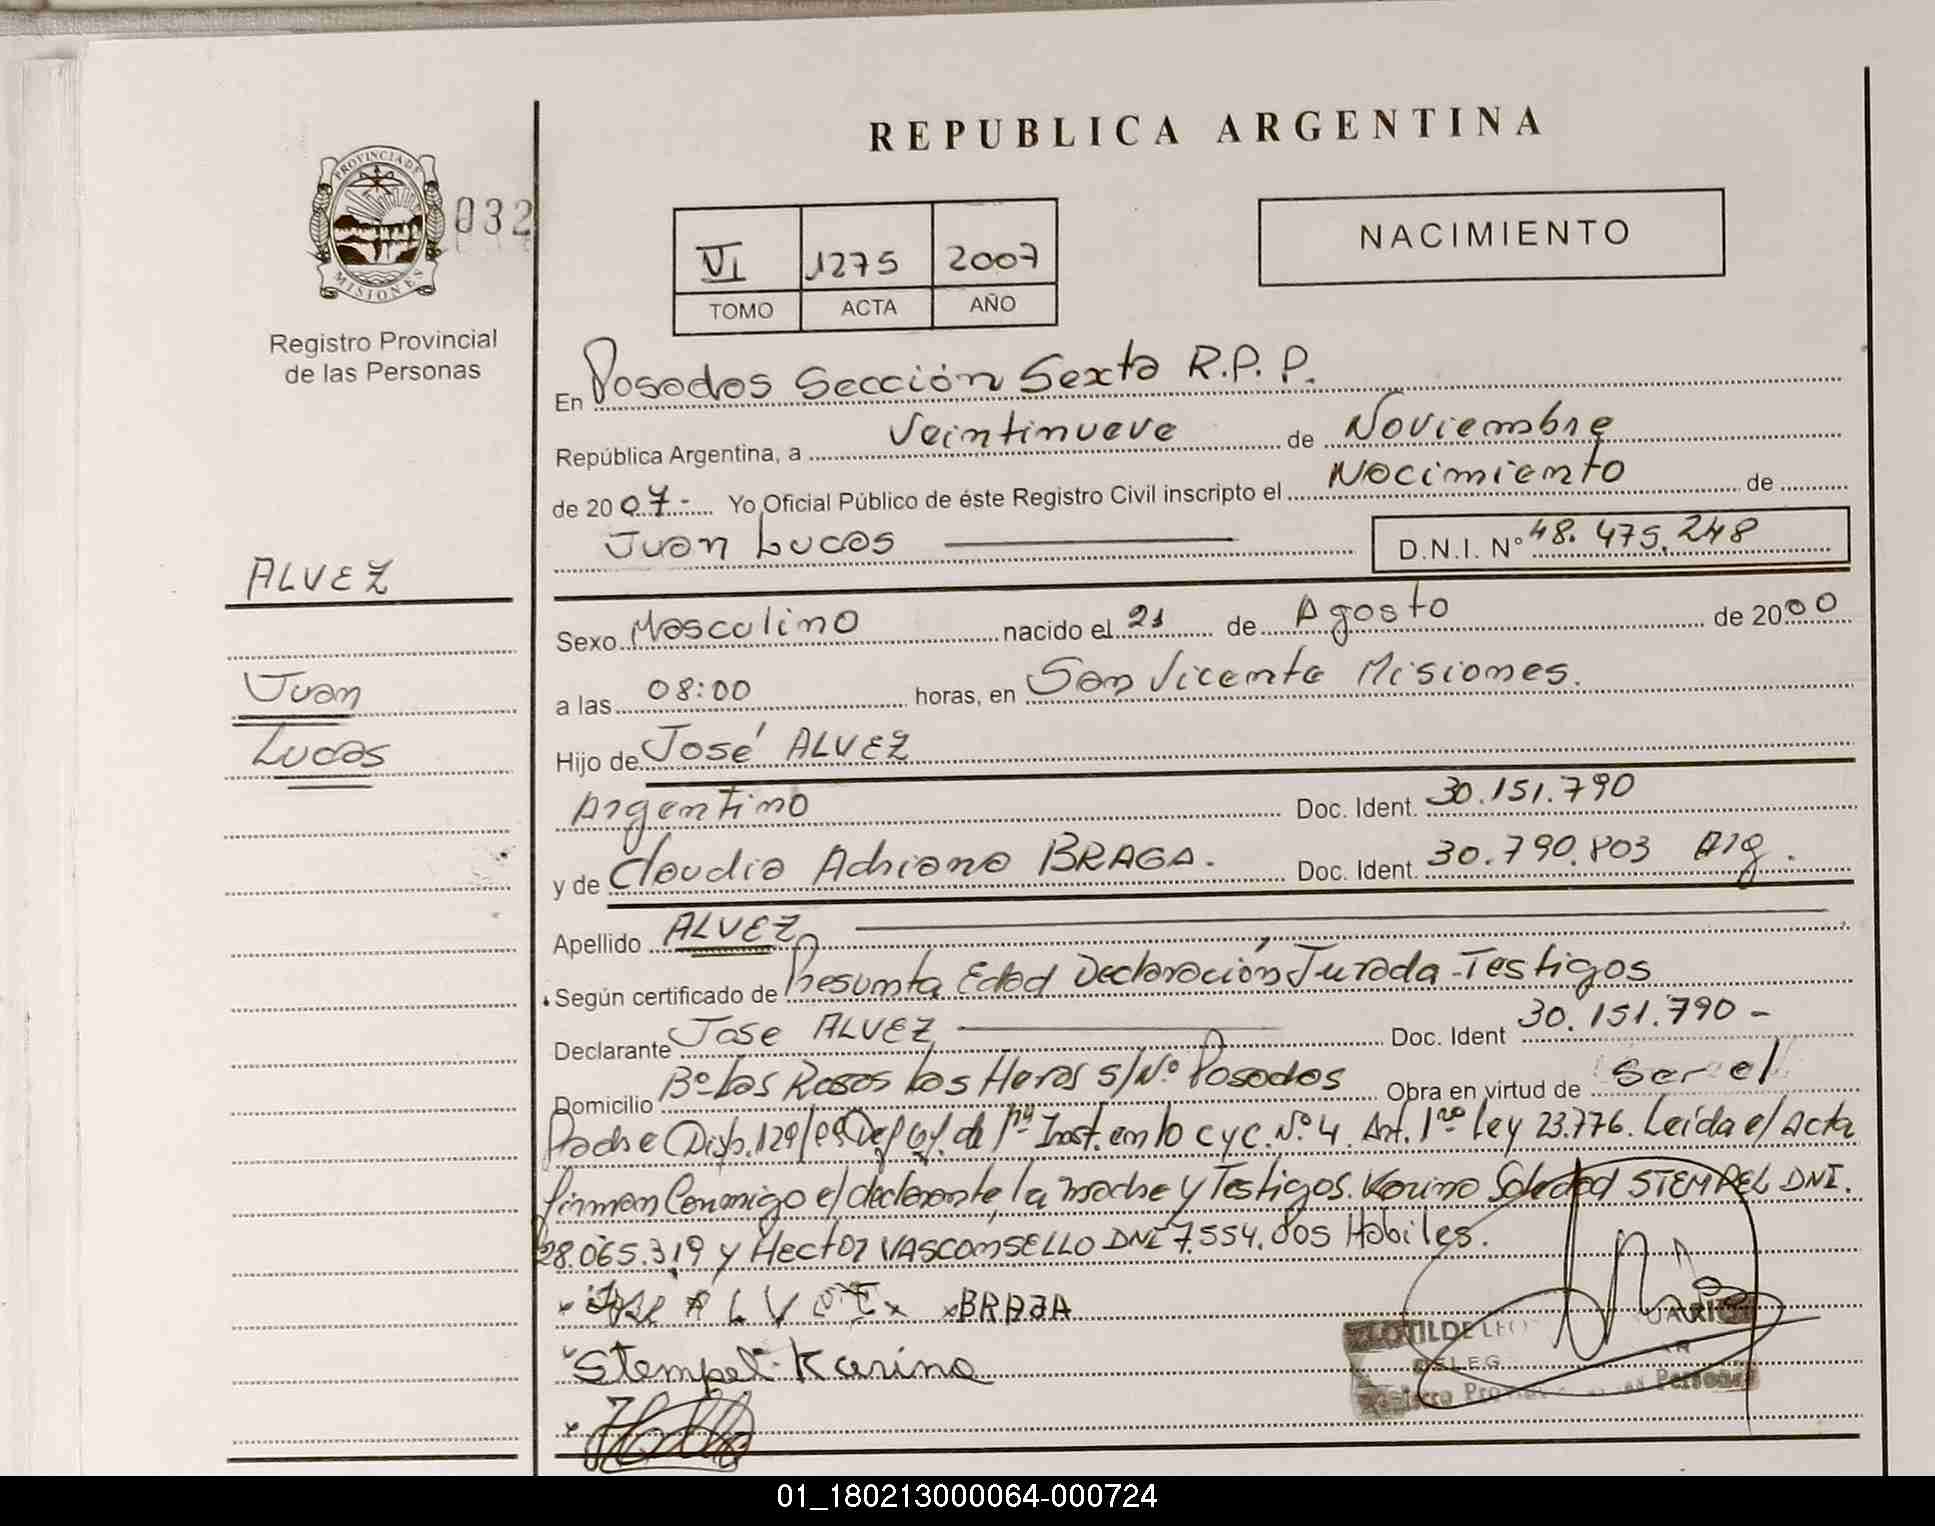 REPUBLICA ARGENTINA
PROVINCIA DE
MISIONES
032
Registro Provincial
de las Personas
VI 1275 2007
TOMO ACTA AÑO
NACIMIENTO
En Posadas Sección Sexta R.P.P.
República Argentina, a Veintinueve de Noviembre
de 2007- Yo Oficial Público de éste Registro Civil inscripto el Nacimiento de
Juan Lucas D.N.I. Nº 48.475.248
ALVEZ
Juan
Lucas
Sexo Masculino nacido el 21 de Agosto de 2000
a las 08:00 horas, en San Vicente Misiones.
Hijo de José ALVEZ
Argentino Doc. Ident. 30.151.790
y de Claudia Adriana BRAGA. Doc. Ident. 30.790.803 Arg.
Apellido ALVEZ
Según certificado de Presunta Edad Declaración Jurada-Testigos
Declarante Jose ALVEZ Doc. Ident 30.151.790-
Domicilio Bº Las Rosas Las Heras s/Nº Posadas Obra en virtud de Ser el
Padre Disp. 129/ Def Of. de 1ra Inst. en lo cyc. Nº 4. Art. 1ro Ley 23.776. Leída el Acta
firman Conmigo el declarante, la madre y Testigos. Karina Soledad STEMPEL DNI.
28.065.319 y Hector VASCONSELLO DNI 7.554.005 Habiles.
ALVEZ x BRAJA
Stempel Karina
CLOTILDE
DELEG
Registro Pro Personas
01_180213000064-000724